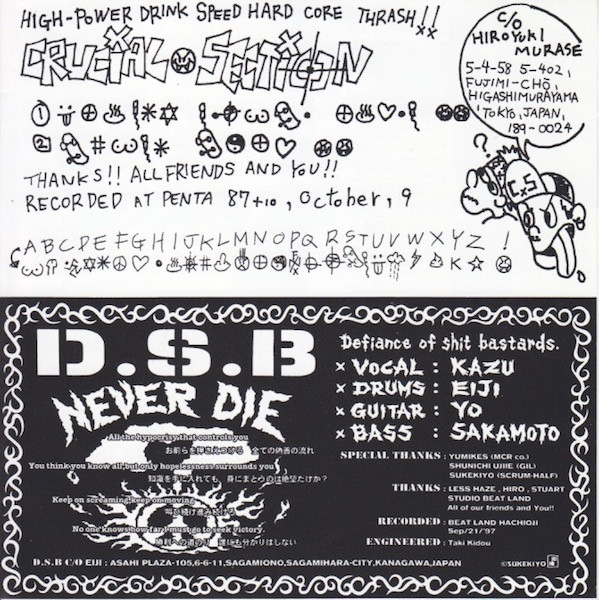 HIGH-POWER DRINK SPEED HARD CORE THRASH!!
CRUCIAL SECTION
①
②
THANKS!! ALL FRIENDS AND YOU!!
RECORDED AT PENTA 87+10, October, 9
ABCDEFGHIJKLMNOPQRSTUVWXYZ!
C/O
HIROYUKI
MURASE
5-4-58 5-402,
FUJIMI-CHŌ,
HIGASHIMURAYAMA
TOKYO, JAPAN,
189-0024
?
CxS
D.S.B
NEVER DIE
All the hypocrisy that controls you
お前らを押さえつける 全ての偽善の流れ
You think you know all, but only hopelessness surrounds you
知識を手に入れても、身にまとうのは絶望だけか?
Keep on screaming, keep on moving
叫び続け進み続けろ
No one knows how far I must go to seek victory
勝利への道のり 誰にも分かりはしない
D.S.B C/O EIJI : ASAHI PLAZA-105,6-6-11,SAGAMIONO,SAGAMIHARA-CITY,KANAGAWA,JAPAN
Defiance of shit bastards.
× VOCAL : KAZU
× DRUMS : EIJI
× GUITAR : YO
× BASS : SAKAMOTO
SPECIAL THANKS : YUMIKES (MCR co.)
SHUNICHI UJIIE (GIL)
SUKEKIYO (SCRUM-HALF)
THANKS : LESS HAZE , HIRO , STUART
STUDIO BEAT LAND
All of our friends and You!!
RECORDED : BEAT LAND HACHIOJI
Sep/21/'97
ENGINEERED : Taki Kidou
©SUKEKIYO